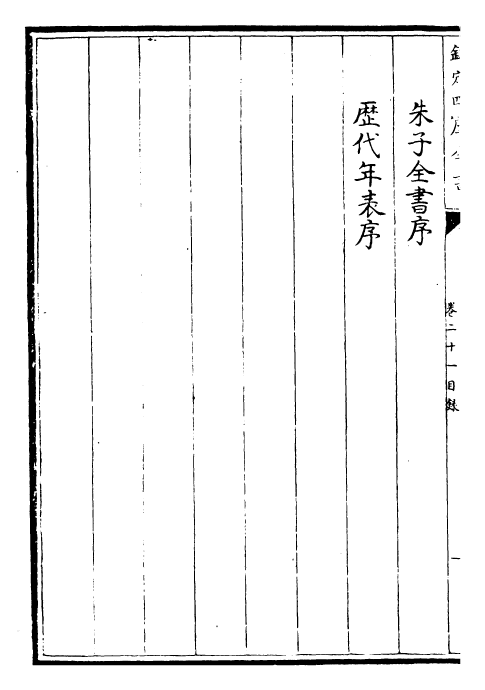 欽定四庫全書
卷二十一目錄
一
朱子全書序
歴代年表序